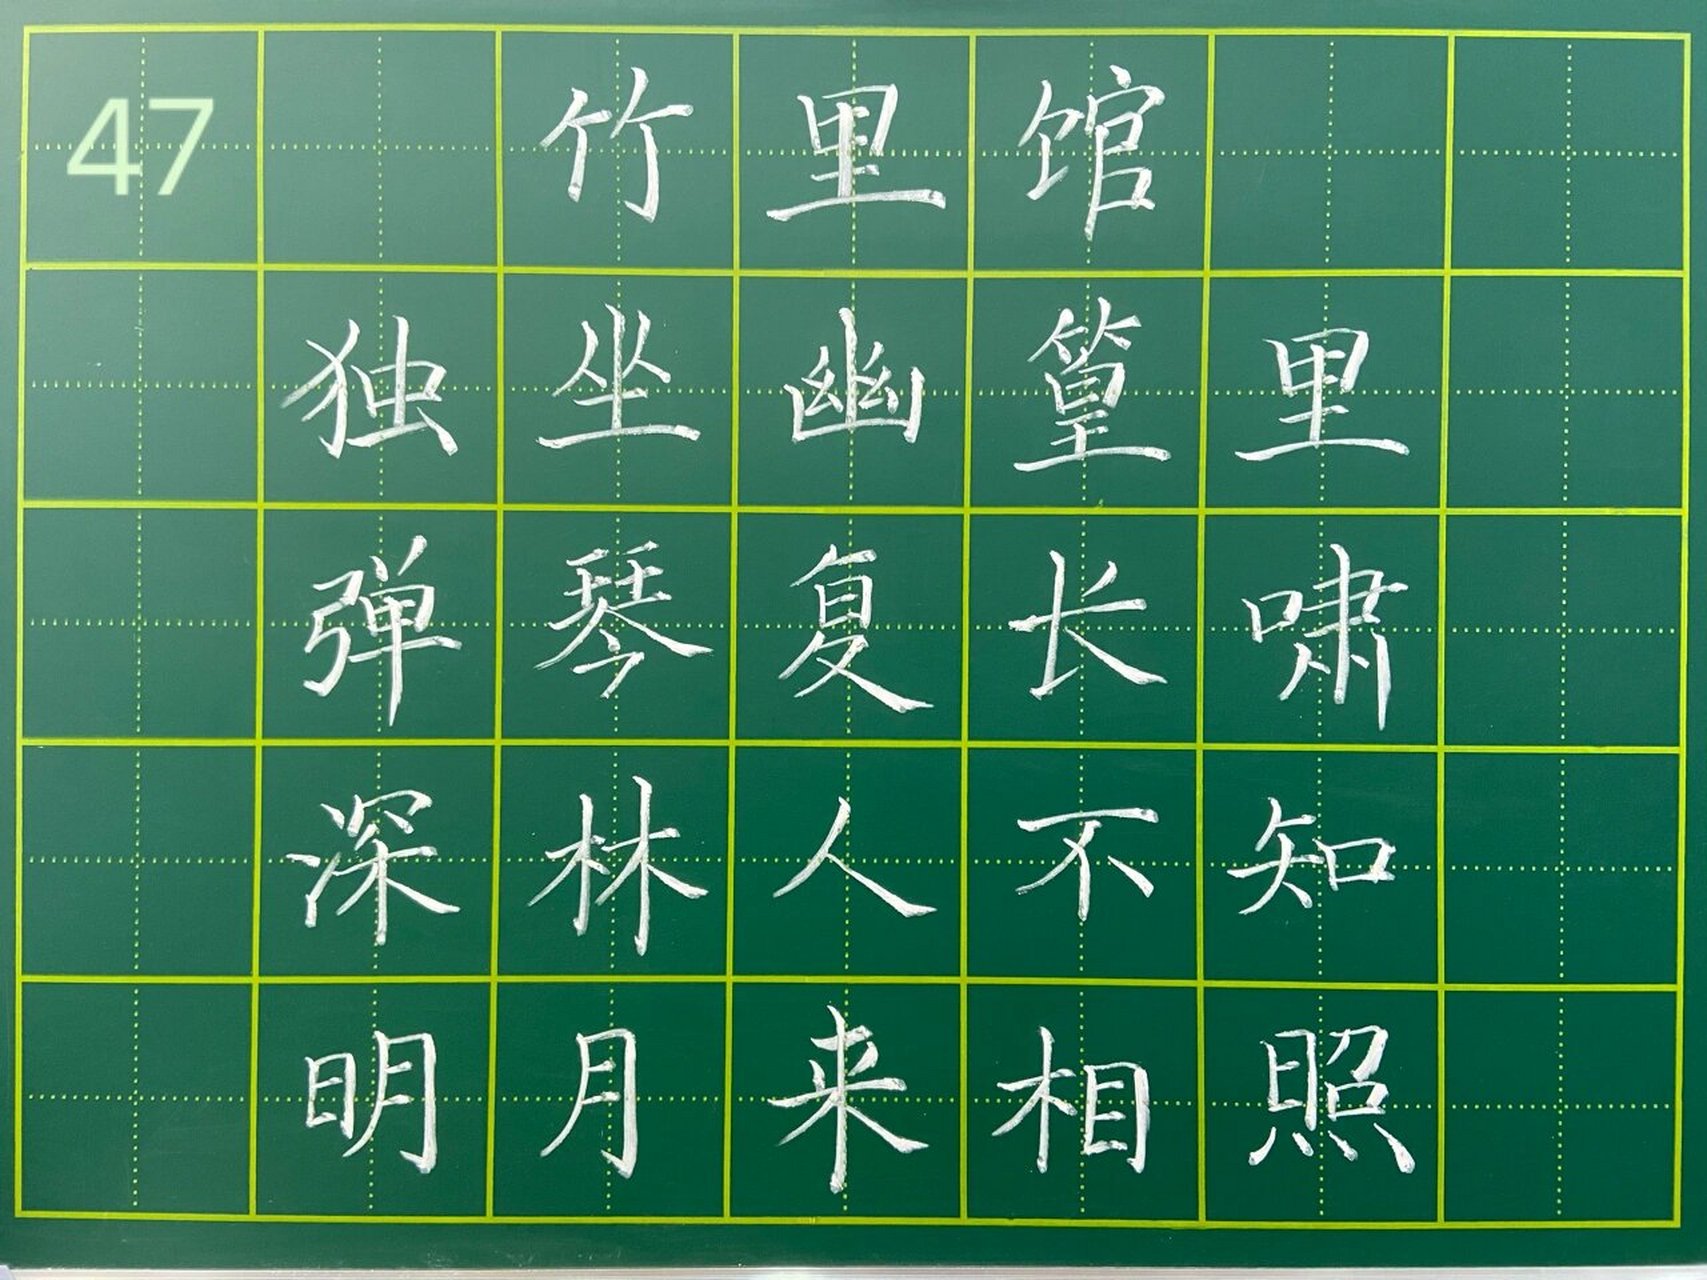 47 竹里馆
独坐幽篁里
弹琴复长啸
深林人不知
明月来相照